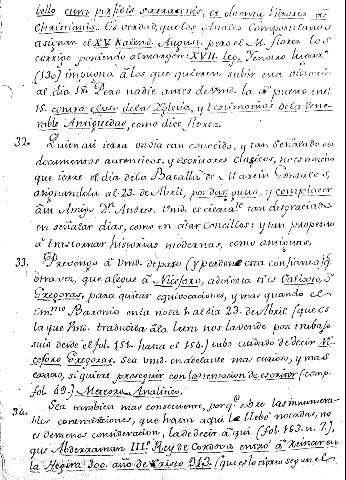 bello cum perfidis sarracenis, et obtenta victoria a
Christianis. Es verdad, que los Anales Compostelanos
asignan el XV Kalend. August. pero el M. florez los
corrigió poniendo al margen: XVII. leg. Tengo lugar
(130) impugna á los que quieren subir esta victoria
al dia 18. Pero nadie antes de Vmd. la ha puesto en el
15. contra el uso de la Iglesia, y testimonios de la vene-
rable Antiguedad, como dice florez.
32. Quien asi ierra un dia tan conocido, y tan señalado en
documentos autenticos, y escritores clasicos, no es mucho
que ierre el dia de la Batalla de Martin Gonzalez,
asignandola al 23. de Abril, por dar gusto, y complacer
á un Amigo Dn. Andres. Vmd. es ciertamte. tan desgraciado
en señalar dias, como en citar Concilios: y tan propenso
á trastornar historias modernas, como antiguas.
33. Prevengo á Vmd. de paso (y perdone esta confianza)
otra vez, que alegue á Niceforo, adiciona si es Calixto, ó
Gregoras, para quitar equivocaciones, y mas quando el
Emmo. Baronio en la nota al dia 23. de Abril (que es
la que Vmd. traducida á la letra nos la vende por trabajo
suio desde el fol. 151. hasta el 154.) tubo cuidado de decir Ni-
ceforo Gregoras. Sea Vmd. en adelante mas curioso, y mas
exacto, si quiere proseguir con la intencion de escritor (comp.
fol. 69.) Mercero Analitico.
34. Sea tambien mas consecuente, porqe. sobre las innumera-
bles contradicciones, que hasta aqui le llebo notadas, no
es de menos consideracion, la de decir á qui (fol. 163. n. 7.),
que Abderraman III. Rey de Cordova entró á Reinar en
la Hegira 300. año de Cristo 913. (que es lo cierto segun el